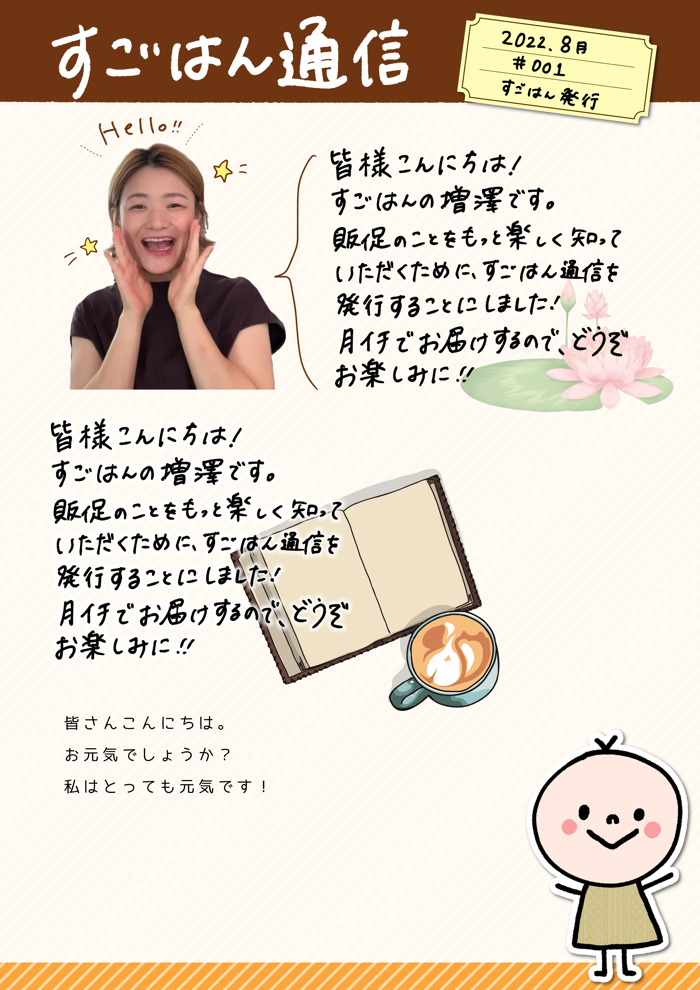 すごはん通信
2022.8月
#001
すごはん発行
Hello!!
皆様こんにちは!
すごはんの増澤です。
販促のことをもっと楽しく知って
いただくために、すごはん通信を
発行することにしました!
月イチでお届けするので、どうぞ
お楽しみに!!
皆様こんにちは!
すごはんの増澤です。
販促のことをもっと楽しく知って
いただくために、すごはん通信を
発行することにしました!
月イチでお届けするので、どうぞ
お楽しみに!!
皆さんこんにちは。
お元気でしょうか?
私はとっても元気です!